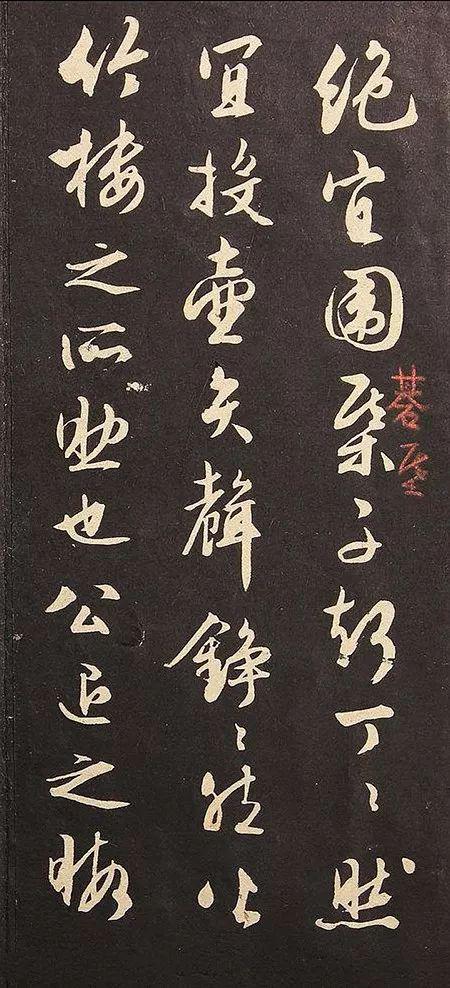 絕宜圍棊子聲丁〻然
宜投壺矢聲錚〻然皆
竹樓之所助也公退之暇